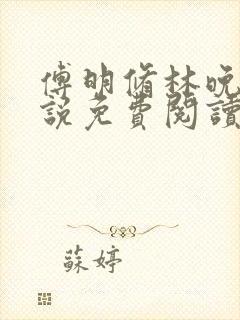 傅明脩林晚
說免費閱讀
蘇婷